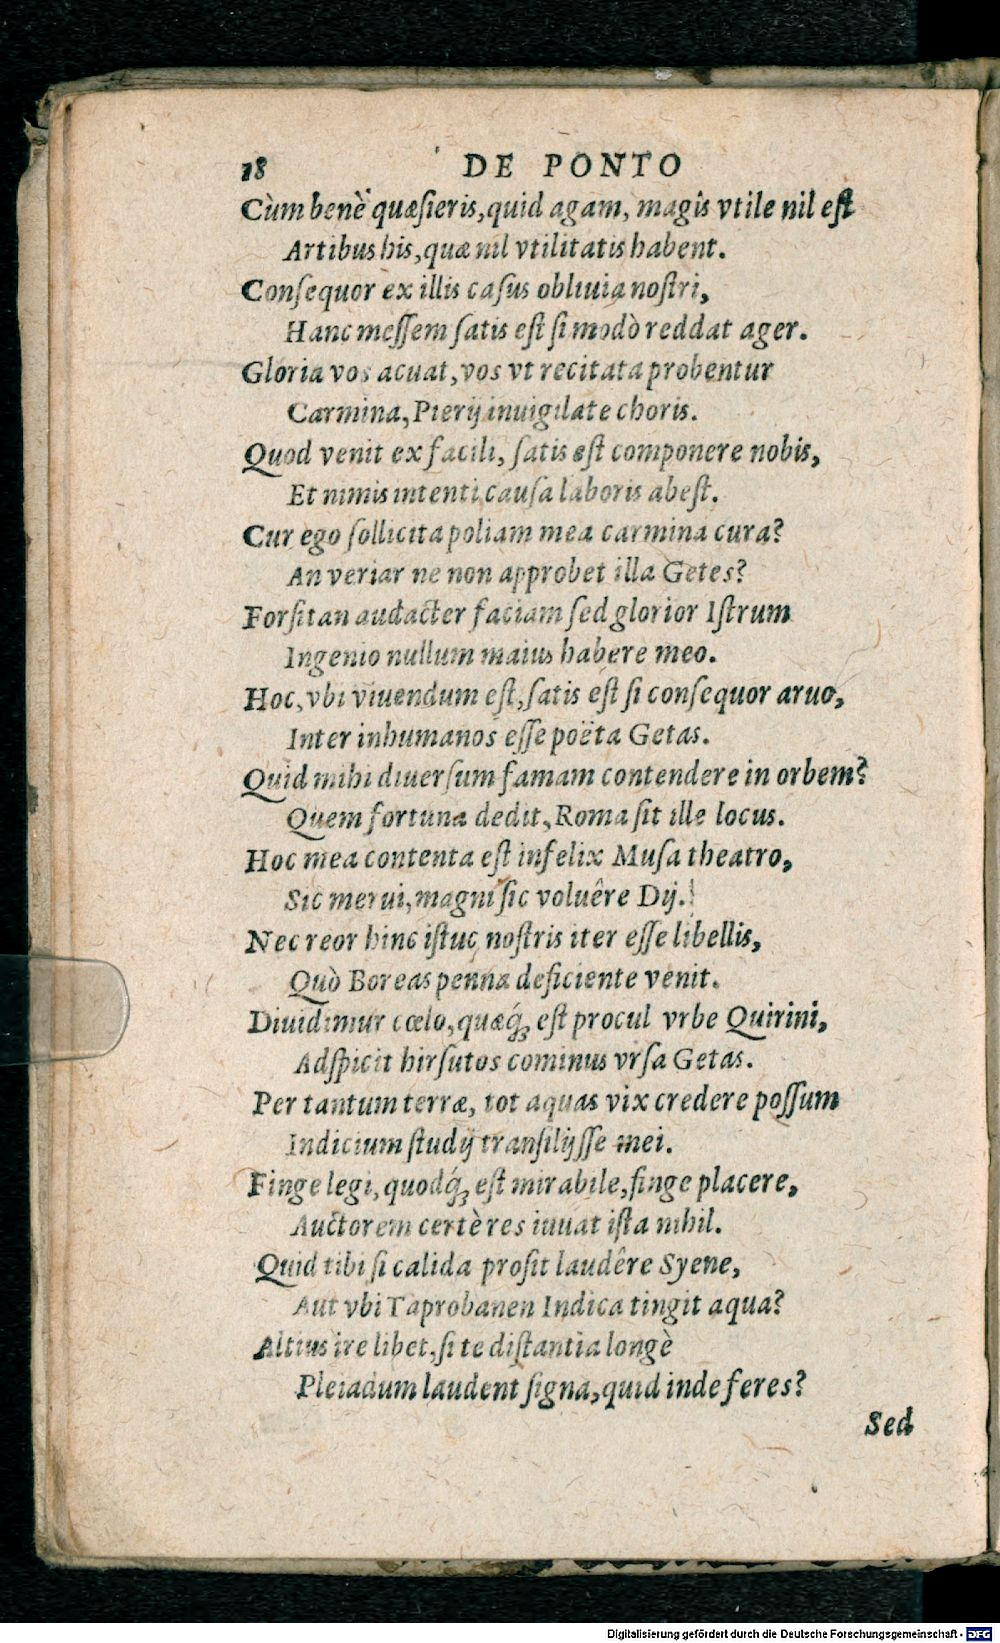 18 DE PONTO
Cùm benè quæſieris, quid agam, magis vtile nil eſt
Artibus his, quæ nil vtilitatis habent.
Conſequor ex illis caſus obliuia noſtri,
Hanc meſſem ſatis eſt ſi modò reddat ager.
Gloria vos acuat, vos vt recitata probentur
Carmina, Pierij inuigilate choris.
Quod venit ex facili, ſatis eſt componere nobis,
Et nimis intenti cauſa laboris abeſt.
Cur ego ſollicita poliam mea carmina cura?
An veriar ne non approbet illa Getes?
Forſitan audacter faciam ſed glorior Iſtrum
Ingenio nullum maius habere meo.
Hoc, vbi viuendum eſt, ſatis eſt ſi conſequor aruo,
Inter inhumanos eſſe poëta Getas.
Quid mihi diuerſum famam contendere in orbem?
Quem fortuna dedit, Roma ſit ille locus.
Hoc mea contenta eſt infelix Muſa theatro,
Sic merui, magni ſic voluêre Dij.
Nec reor hinc iſtuc noſtris iter eſſe libellis,
Quò Boreas penna deficiente venit.
Diuidimur cœlo, quæq́; eſt procul vrbe Quirini,
Adſpicit hirſutos cominus vrſa Getas.
Per tantum terræ, tot aquas vix credere poſſum
Indicium ſtudij tranſilijſſe mei.
Finge legi, quodq́; eſt mirabile, finge placere,
Auctorem certè res iuuat iſta nihil.
Quid tibi ſi calida proſit laudêre Syene,
Aut vbi Taprobanen Indica tingit aqua?
Altius ire libet, ſi te diſtantia longè
Pleiadum laudent ſigna, quid inde feres?
Sed
Digitalisierung gefördert durch die Deutsche Forschungsgemeinschaft - DFG